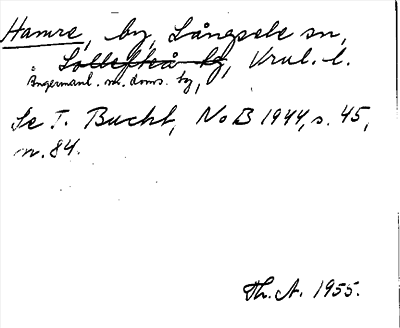 Hamre, by, Långsele sn,
Sollefteå tg, Vnl. l.
Ångermanl. m. doms. tg,
Se T. Bucht, NoB 1944, s. 45,
m. 84.
Th. A. 1955.